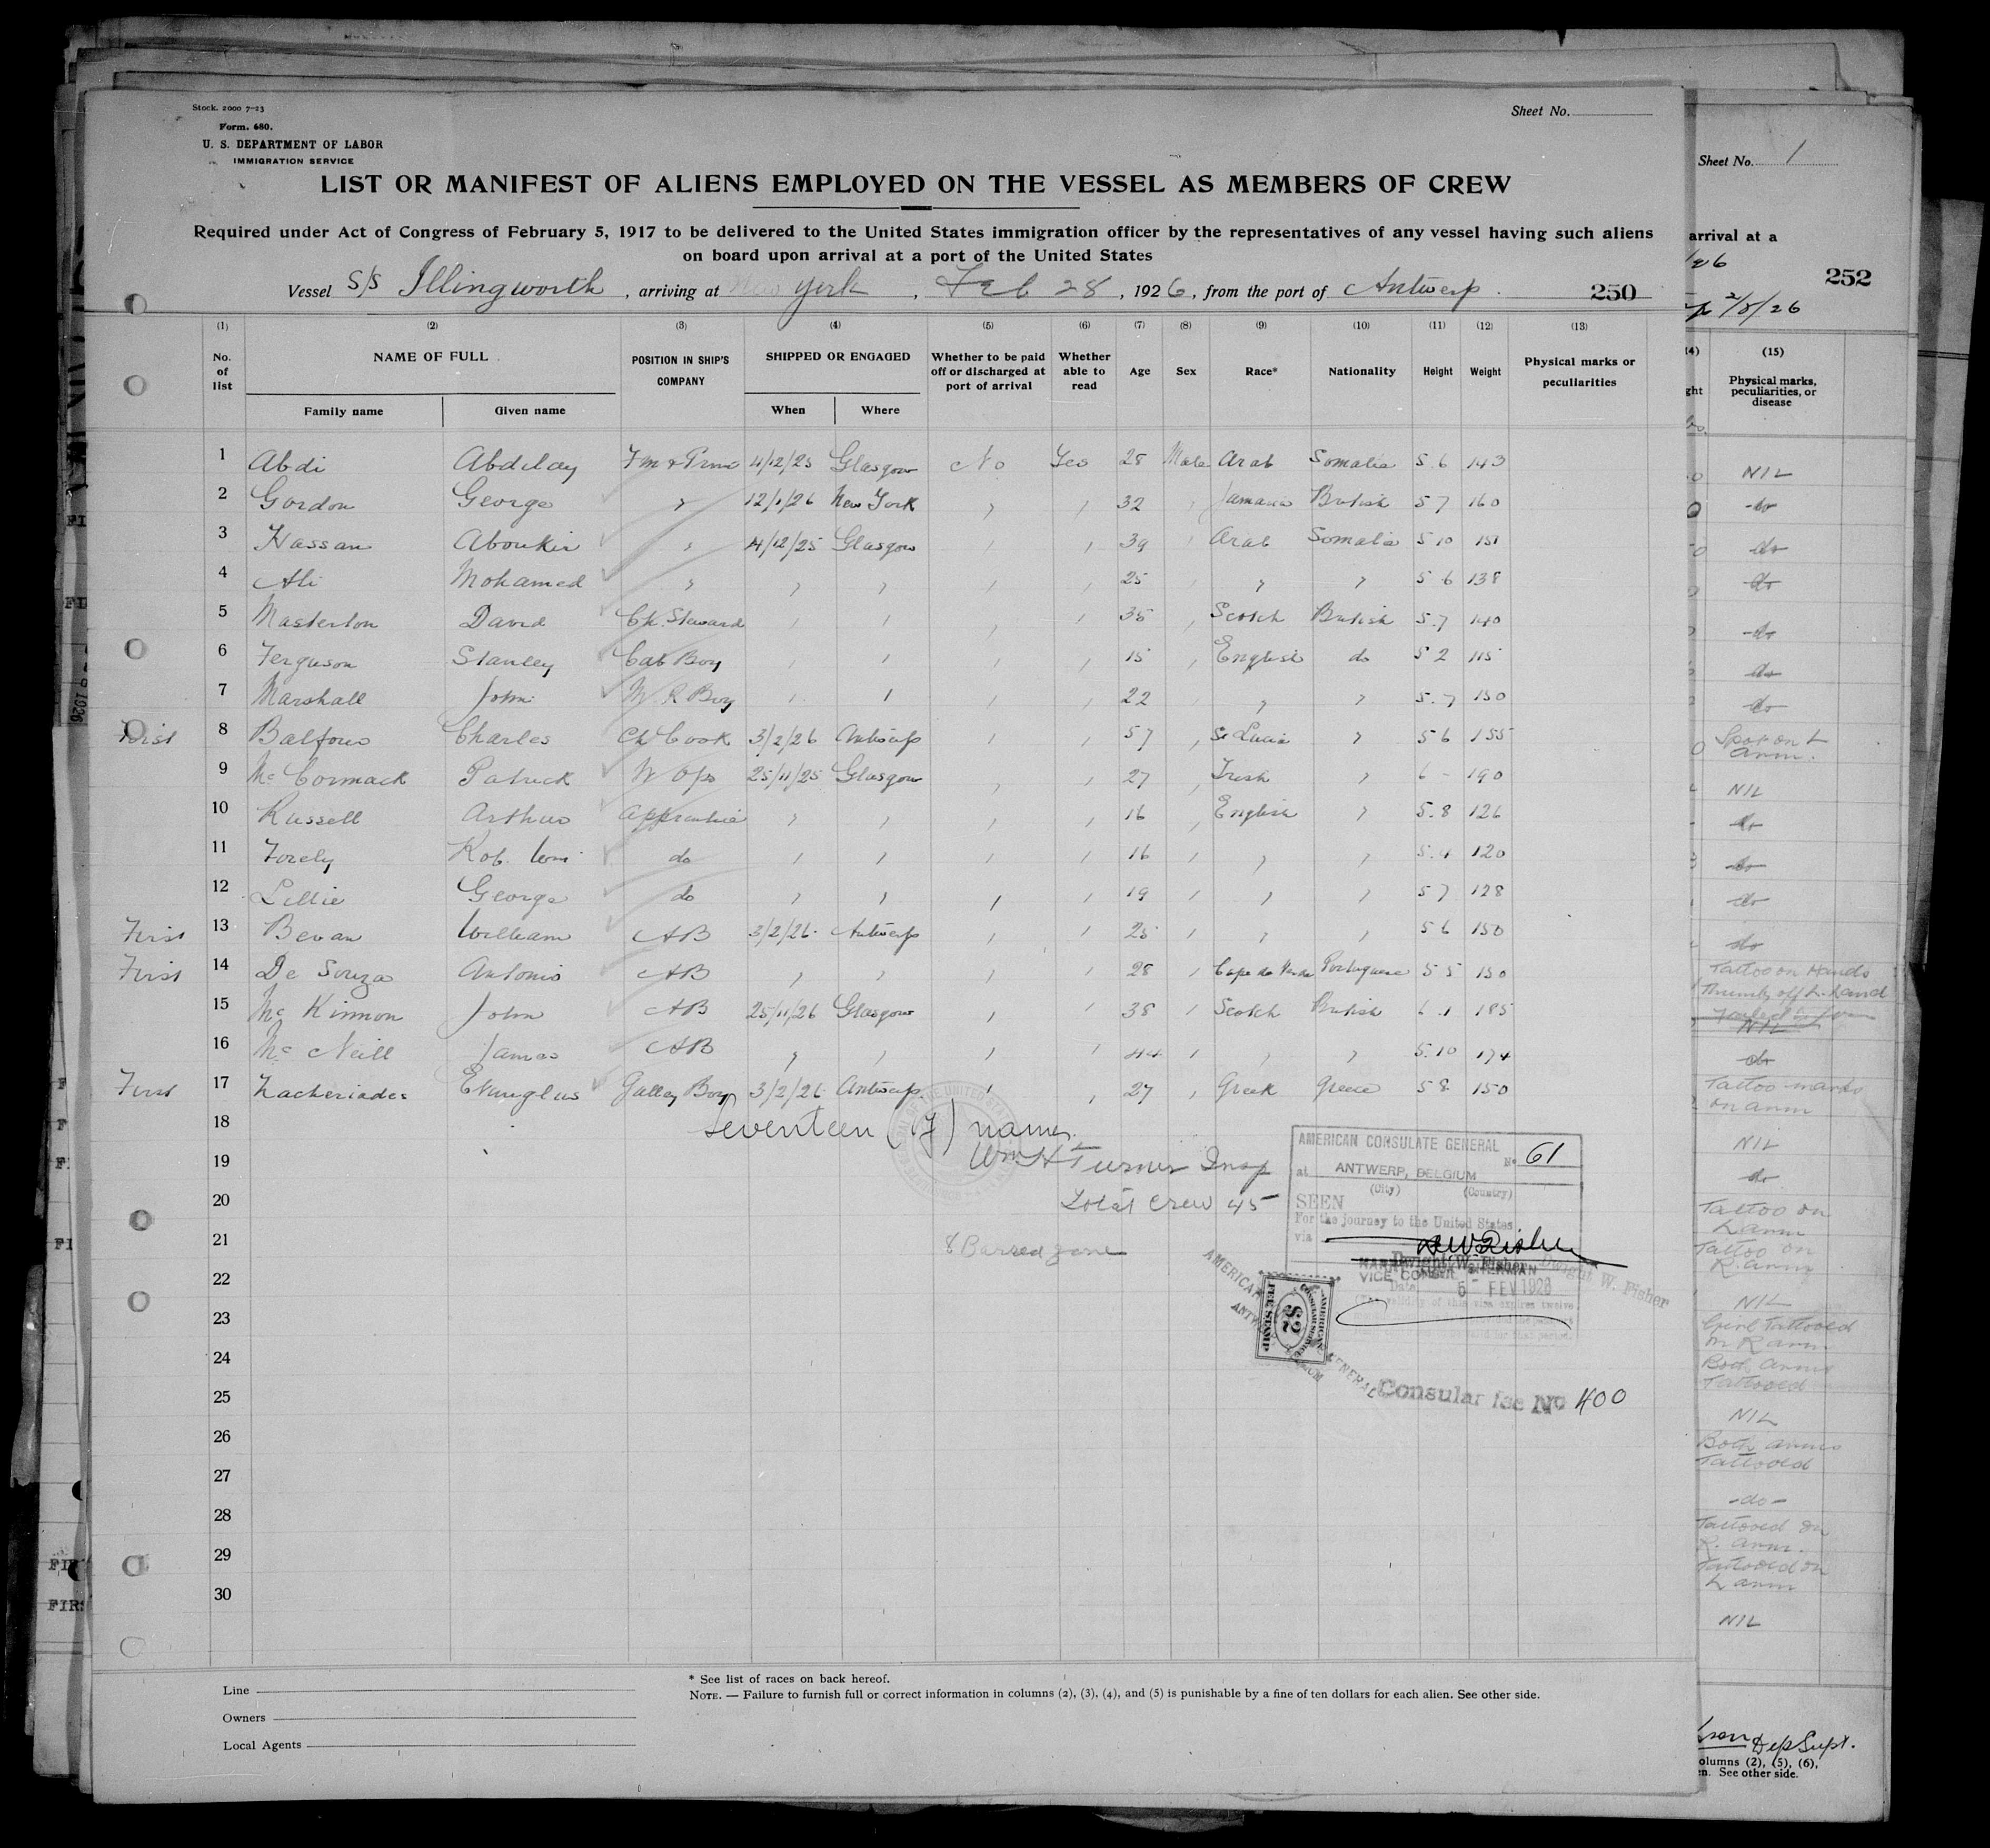 Stock. 2000 7-23
Form. 680.
U. S. DEPARTMENT OF LABOR
IMMIGRATION SERVICE
Sheet No.
LIST OR MANIFEST OF ALIENS EMPLOYED ON THE VESSEL AS MEMBERS OF CREW
Required under Act of Congress of February 5, 1917 to be delivered to the United States immigration officer by the representatives of any vessel having such aliens
on board upon arrival at a port of the United States
Vessel S/S Illingworth, arriving at New York, Feb 28, 1926, from the port of Antwerp. 250
(1) (2) (3) (4) (5) (6) (7) (8) (9) (10) (11) (12) (13)
No. of list NAME OF FULL POSITION IN SHIP'S COMPANY SHIPPED OR ENGAGED Whether to be paid off or discharged at port of arrival Whether able to read Age Sex Race* Nationality Height Weight Physical marks or peculiarities
Family name Given name When Where
1 Abdi Abdilay 4/12/25 Glasgow No Yes 28 Male Arab Somalia 5.6 143
2 Gordon George " 12/1/26 New York " " 32 " Jamaica British 5 7 160
3 Hassan Aboukir " 4/12/25 Glasgow " " 39 " Arab Somalia 5 10 151
4 Ali Mohamed " " " " " 25 " " " 5 6 138
5 Masterton David Ch. Steward " " " " 35 " Scotch British 5.7 140
6 Ferguson Stanley Cab Boy " " " " 15 " English do 5 2 115
7 Marshall John M R Boy " " " " 22 " " " 5.7 150
First 8 Balfour Charles Ch Cook 3/2/26 Antwerp " " 57 " St Lucia " 5 6 155
9 Mc Cormack Patrick W Opr 25/11/25 Glasgow " " 27 " Irish " 6 - 190
10 Russell Arthur Apprentice " " " " 16 " English " 5.8 126
11 Rob. Wm do " " " " 16 " " " 5.4 120
12 Lillie George do " " " " 19 " " " 5 7 128
First 13 Bevan William AB 3/2/26 Antwerp " " 25 " " " 5 6 150
First 14 De Souza Antonio AB " " " " 28 " Cape de Verde Portuguese 5 5 150
15 Mc Kinnon John AB 25/11/26 Glasgow " " 38 " Scotch British 6.1 185
16 Mc Neill James AB " " " " 44 " " " 5.10 174
First 17 Zacheriades Galley Boy 3/2/26 Antwerp " " 27 " Greek Greece 5 8 150
18
Seventeen (17) names.
19
Wm H Turner Insp
20
Total crew 45
21
8 Barred zone
22
23
24
25
26
27
28
29
30
AMERICAN CONSULATE GENERAL
No 61
at ANTWERP, BELGIUM
(City) (Country)
SEEN
For the journey to the United States
via
Dwight W. Fisher
Dwight W. Fisher
VICE CONSUL
Date 5 - FEV 1926
AMERICAN CONSULAR SERVICE
$2
FEE STAMP
Consular fee No 400
Line
Owners
Local Agents
* See list of races on back hereof.
NOTE. — Failure to furnish full or correct information in columns (2), (3), (4), and (5) is punishable by a fine of ten dollars for each alien. See other side.
Sheet No. 1
arrival at a
252
2/8/26
(15)
Physical marks, peculiarities, or disease
NIL
do
do
do
do
do
do
Spot on L
arm.
NIL
do
do
do
do
Tattoo on Hands
Thumb off L. hand
NIL
do
Tattoo marks
on arm
NIL
do
Tattoo on
L arm
Tattoo on
R. arm
NIL
Girl Tattooed
on R arm
Both arms
Tattooed
NIL
Both arms
Tattooed
-do-
Tattooed on
R. arm.
Tattooed on
L arm
NIL
Dep Supt.
olumns (2), (5), (6),
en. See other side.